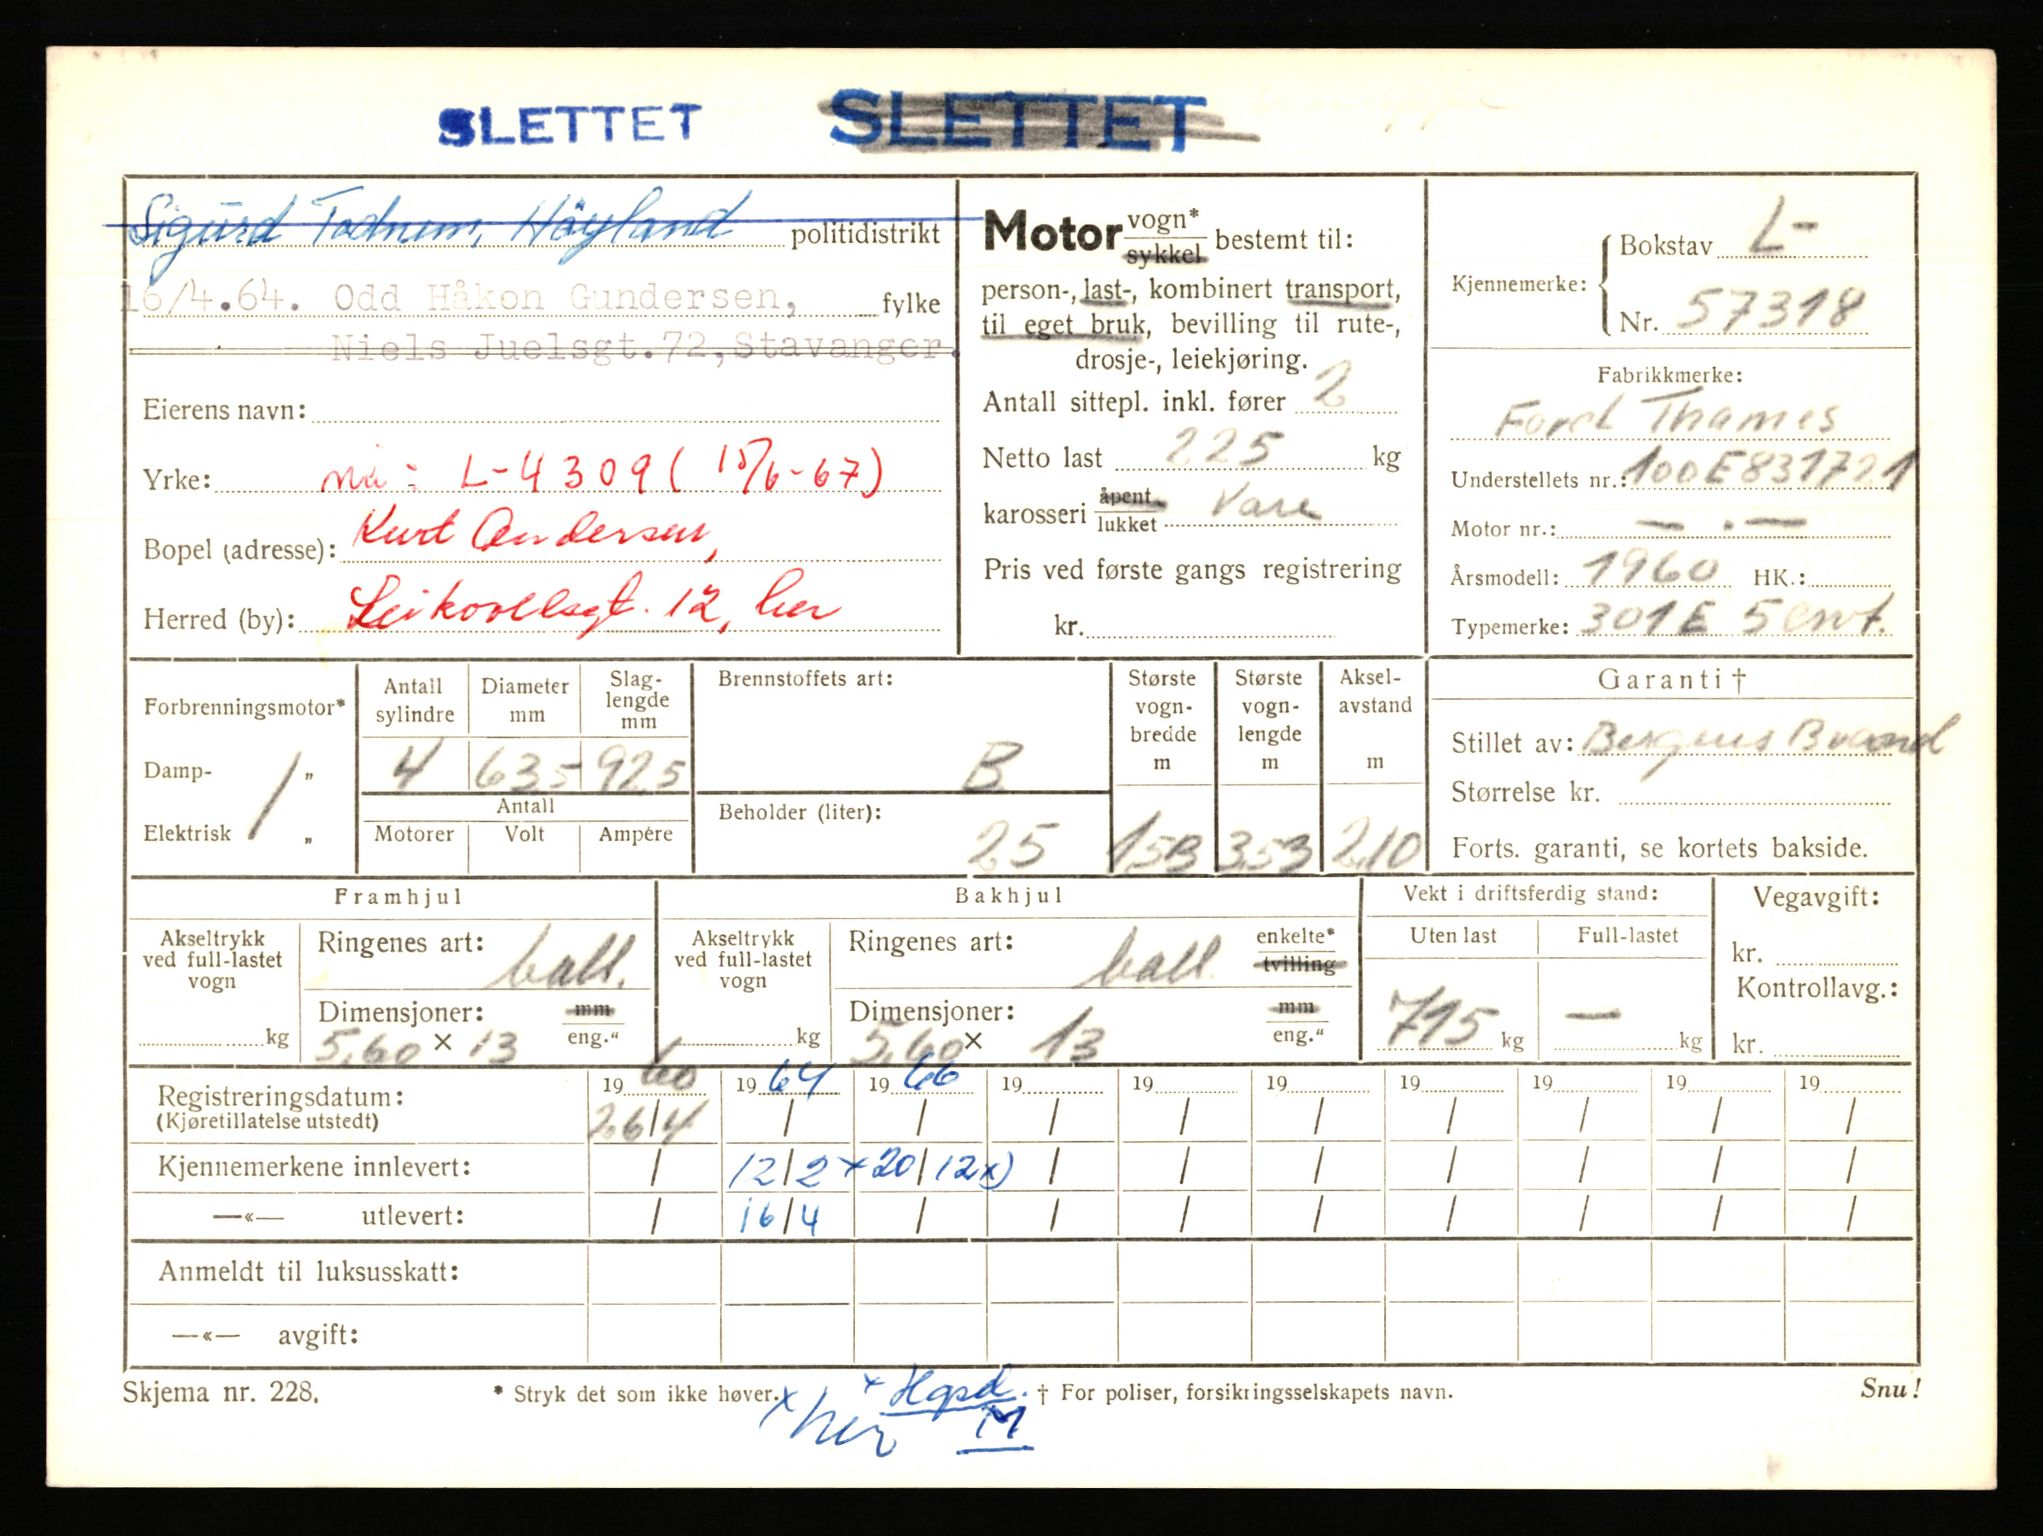 SLETTET SLETTET
Sigurd Todnem, Höyland politidistrikt
16/4.64. Odd Håkon Gundersen, fylke
Niels Juelsgt.72, Stavanger.
Eierens navn:
Yrke: nå: L-4309 (15/6-67)
Bopel (adresse): Kurt Andersen,
Herred (by): Leikvollsgt. 12, her
Motor vogn* sykkel bestemt til:
person-, last-, kombinert transport,
til eget bruk, bevilling til rute-,
drosje-, leiekjøring.
Antall sittepl. inkl. fører 2
Netto last 225 kg
karosseri åpent lukket Vare
Pris ved første gangs registrering
kr.
Kjennemerke: Bokstav L-
Nr. 57318
Fabrikkmerke:
Ford Thames
Understellets nr.: 100E831721
Motor nr.: — . —
Årsmodell: 1960 HK.:
Typemerke: 301E 5 Cwt.
Forbrenningsmotor*
Damp- "
Elektrisk "
Antall sylindre
Diameter mm
Slag-lengde mm
4 635 925
Antall
Motorer Volt Ampére
Brennstoffets art:
B
Beholder (liter):
25
Største vogn-bredde m
153
Største vogn-lengde m
3.53
Aksel-avstand m
210
Garanti †
Stillet av:
Størrelse kr.
Forts. garanti, se kortets bakside.
Framhjul
Akseltrykk ved full-lastet vogn
kg
Ringenes art: ball.
Dimensjoner: mm
5,60 × 13 eng."
Bakhjul
Akseltrykk ved full-lastet vogn
kg
Ringenes art: ball. enkelte* tvilling
Dimensjoner: mm
5,60 × 13 eng."
Vekt i driftsferdig stand:
Uten last Full-lastet
715 kg — kg
Vegavgift:
kr.
Kontrollavg.:
kr.
Registreringsdatum: 19 60 19 64 19 66 19 19 19 19 19 19 19
(Kjøretillatelse utstedt) 26/4 / / / / / / / / /
Kjennemerkene innlevert: / 12/2 x 20/12 x) / / / / / / /
—«— utlevert: / 16/4 / / / / / / / /
Anmeldt til luksusskatt:
—«— avgift:
Skjema nr. 228. * Stryk det som ikke høver. x Hgsd. † For poliser, forsikringsselskapets navn. Snu!
x her M